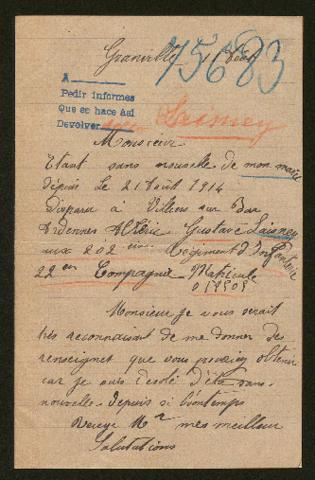 Granville
75683
A
Pedir informes
Que se hace así
Devolver
Laisney
Monsieur
Etant sans nouvelle de mon mari
depuis le 21 Août 1914
Disparu à Villers sur Bar
Ardennes Gustave Laisney
aux 202 eme Regiment d'Infanterie
22 em Compagnie Matricule
01909
Monsieur je vous serait
très reconnaisant de me donner des
renseignet que vous pouriez obtenir
car je suis desolé d'êt 
nouvelle depuis si lontemps
Recevez Mr mes meilleur
Salutations